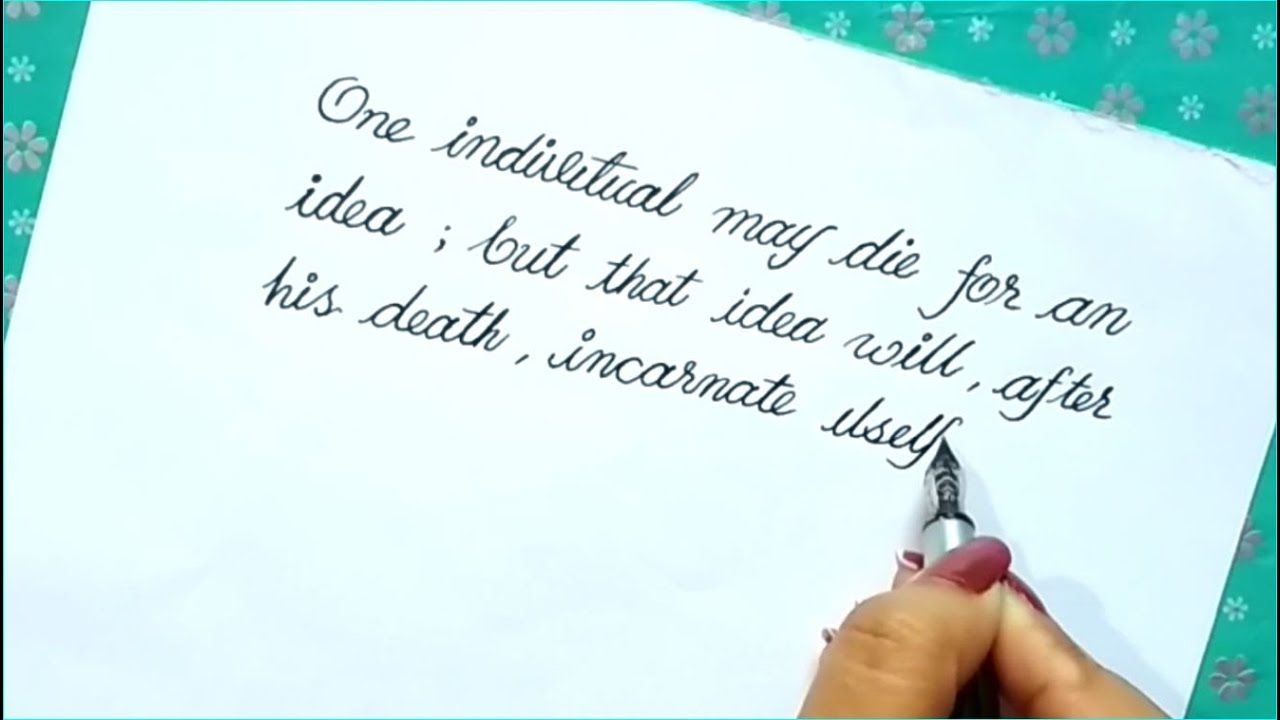 One indivitual may die for an
idea ; but that idea will, after
his death, incarnate itself